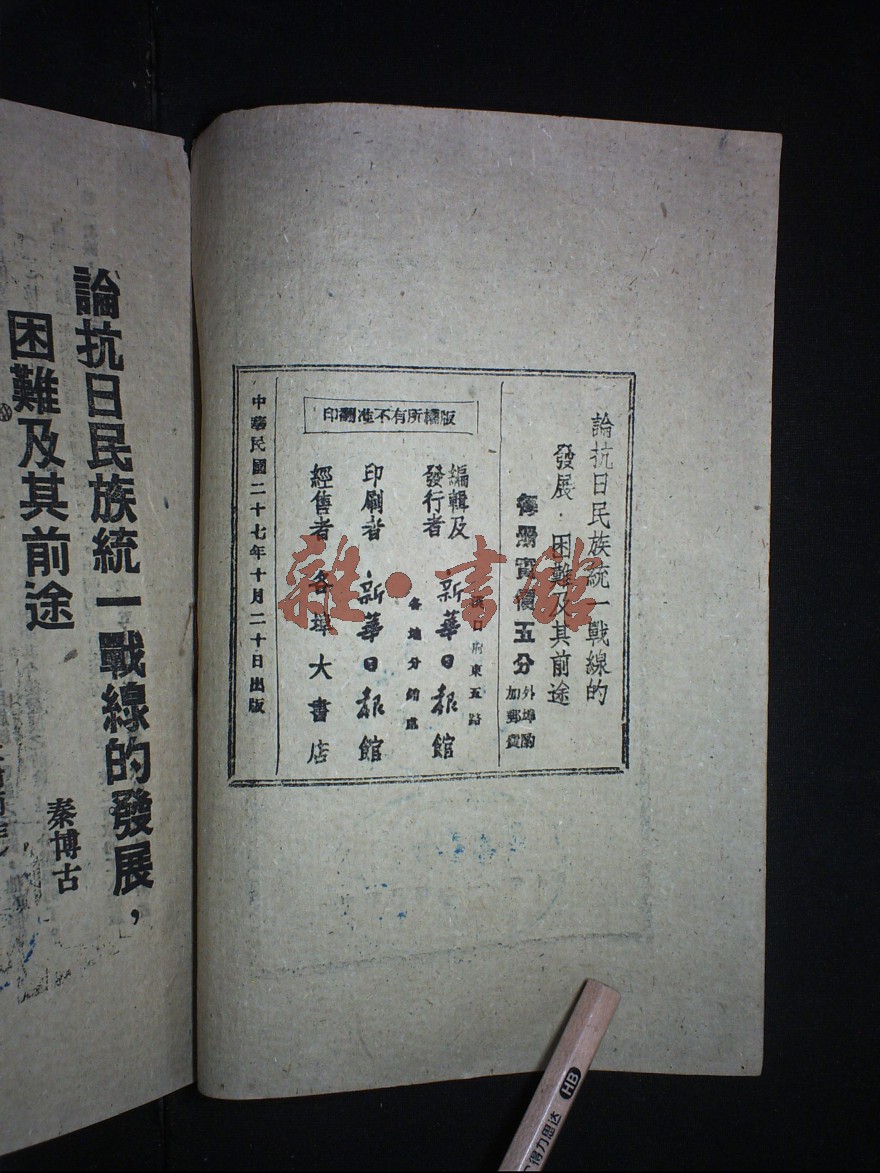 論抗日民族統一戰線的發展，
困難及其前途
秦博古
論抗日民族統一戰線的
發展．困難及其前途
每冊實價五分
外埠酌
加郵費
版權所有不准翻印
編輯及
發行者
新華日報館
漢口府東五路
各地分銷處
印刷者 新華日報館
經售者 各埠大書店
中華民國二十七年十月二十日出版
雜·書館
HB
得力思达